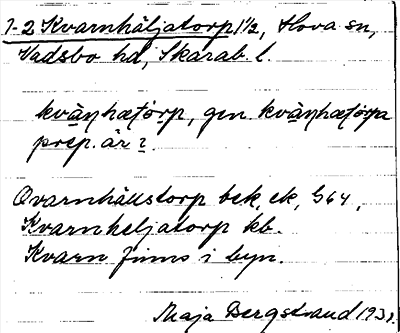 1-2 Kvarnhäljatorp 1/2, Hova sn,
Vadsbo hd, Skarab. l.
kvąɳhæʈórp, gen. kvąɳhæʈórpa
prep. är i.
Qvarnhällstorp bek, ek, 564,
Kvarnheljatorp kb.
Kvarn finns i byn.
Maja Bergstrand 1931.